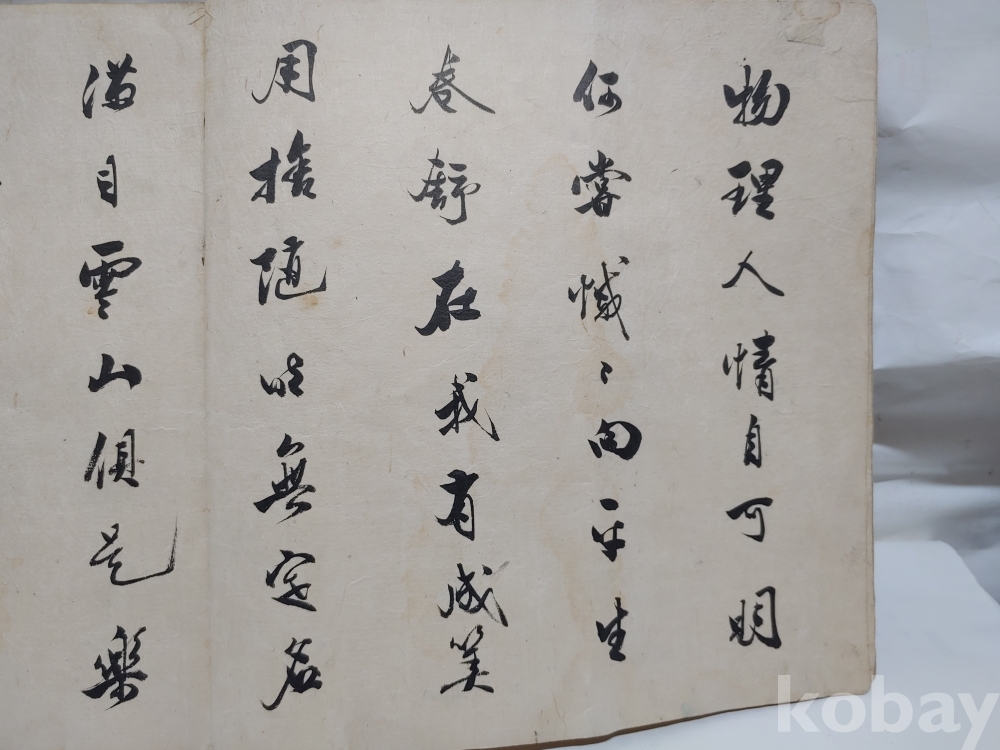 物理人情自可明
何嘗慽〻向平生
卷舒在我有成筭
用捨随時無定名
滿目雲山俱是樂
kobay